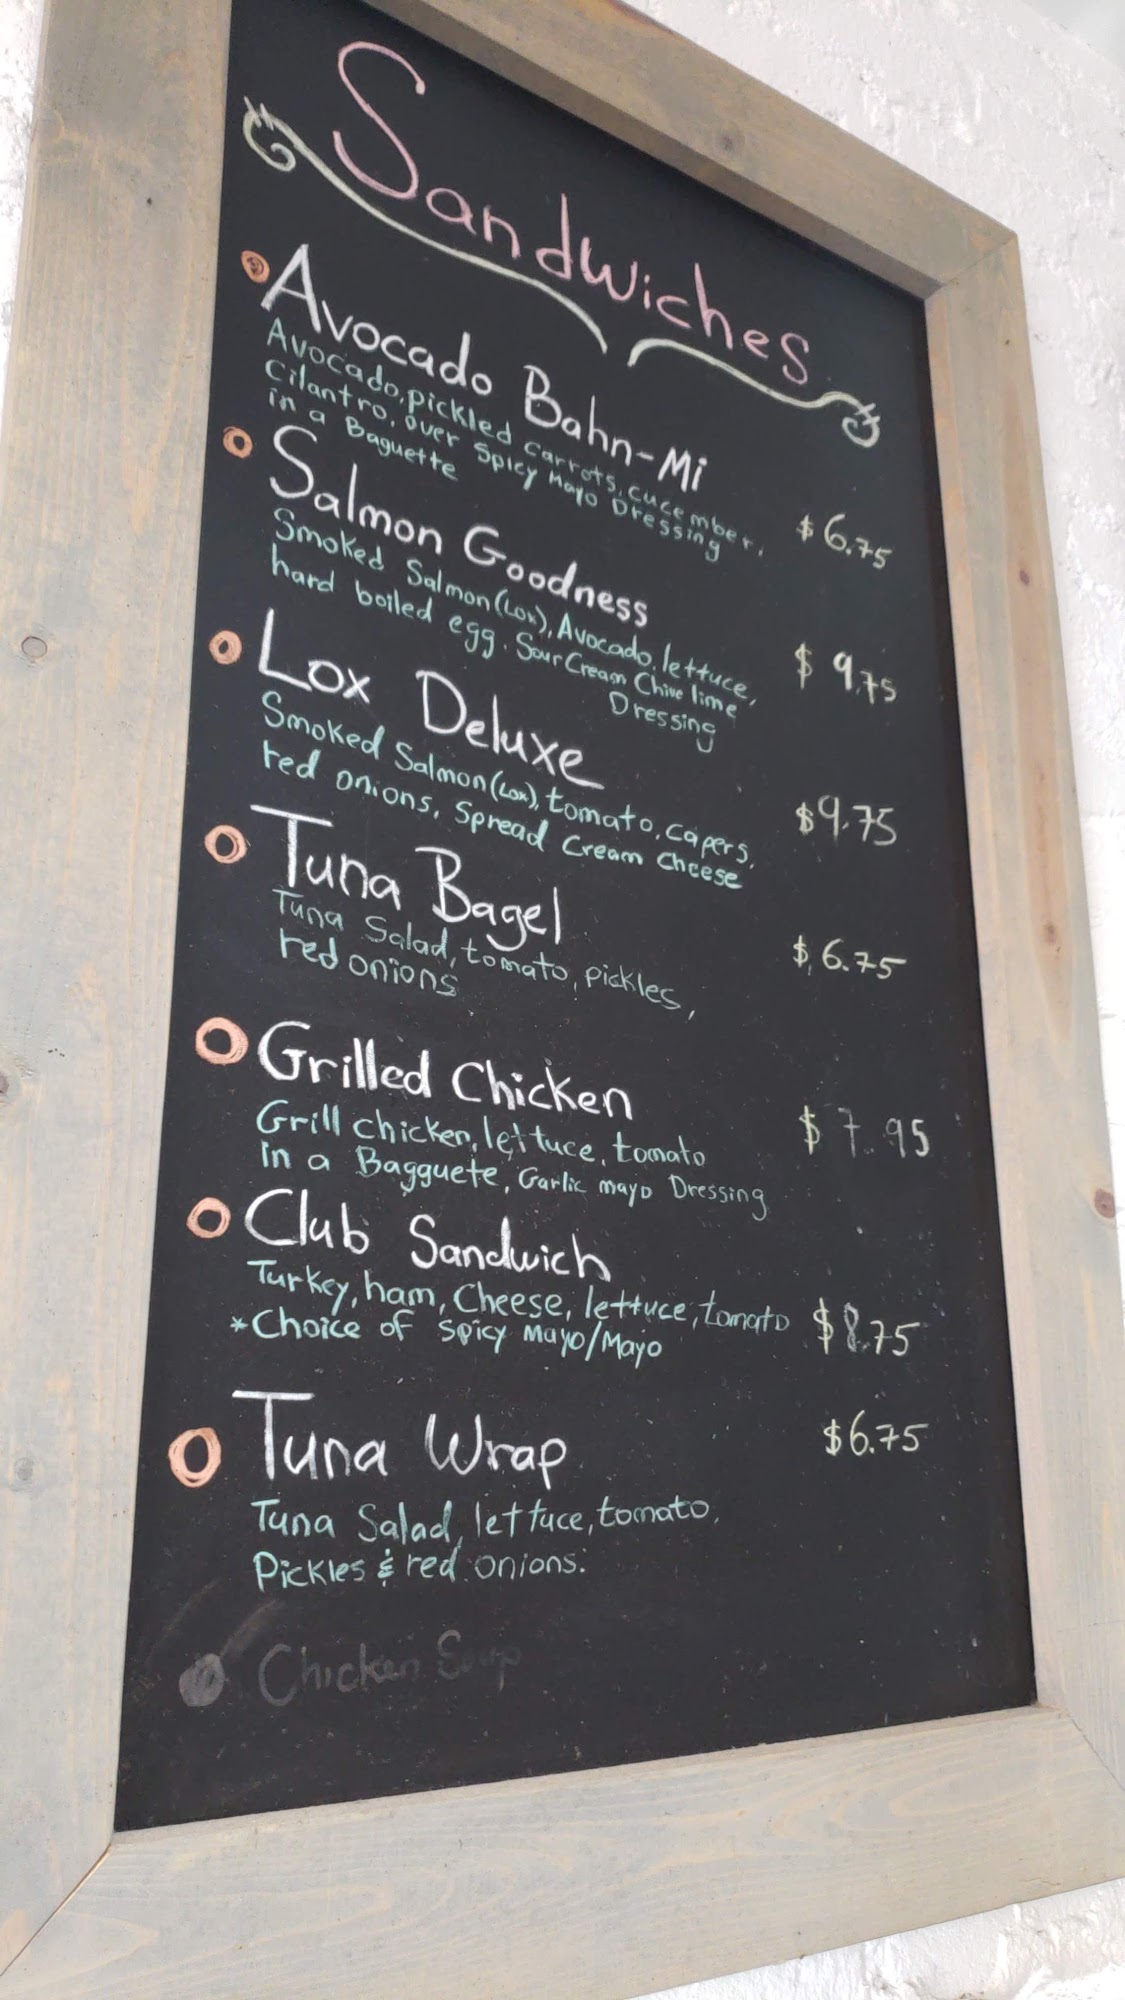 Sandwiches
Avocado Bahn-Mi
Avocado, pickled carrots, cucember,
Cilantro, over Spicy Mayo Dressing
in a Baguette
$6.75
Salmon Goodness
Smoked Salmon (Lox), Avocado, lettuce,
hard boiled egg. Sour Cream Chive lime
Dressing
$9.75
Lox Deluxe
Smoked Salmon (Lox), tomato, capers,
red onions, Spread Cream Cheese
$9.75
Tuna Bagel
Tuna Salad, tomato, pickles,
red onions
$6.75
Grilled Chicken
Grill chicken, lettuce, tomato
in a Bagguete, Garlic mayo Dressing
$7.95
Club Sandwich
Turkey, ham, Cheese, lettuce, tomato
*Choice of spicy Mayo/Mayo
$8.75
Tuna Wrap
$6.75
Tuna Salad, lettuce, tomato,
Pickles & red onions.
Chicken Soup